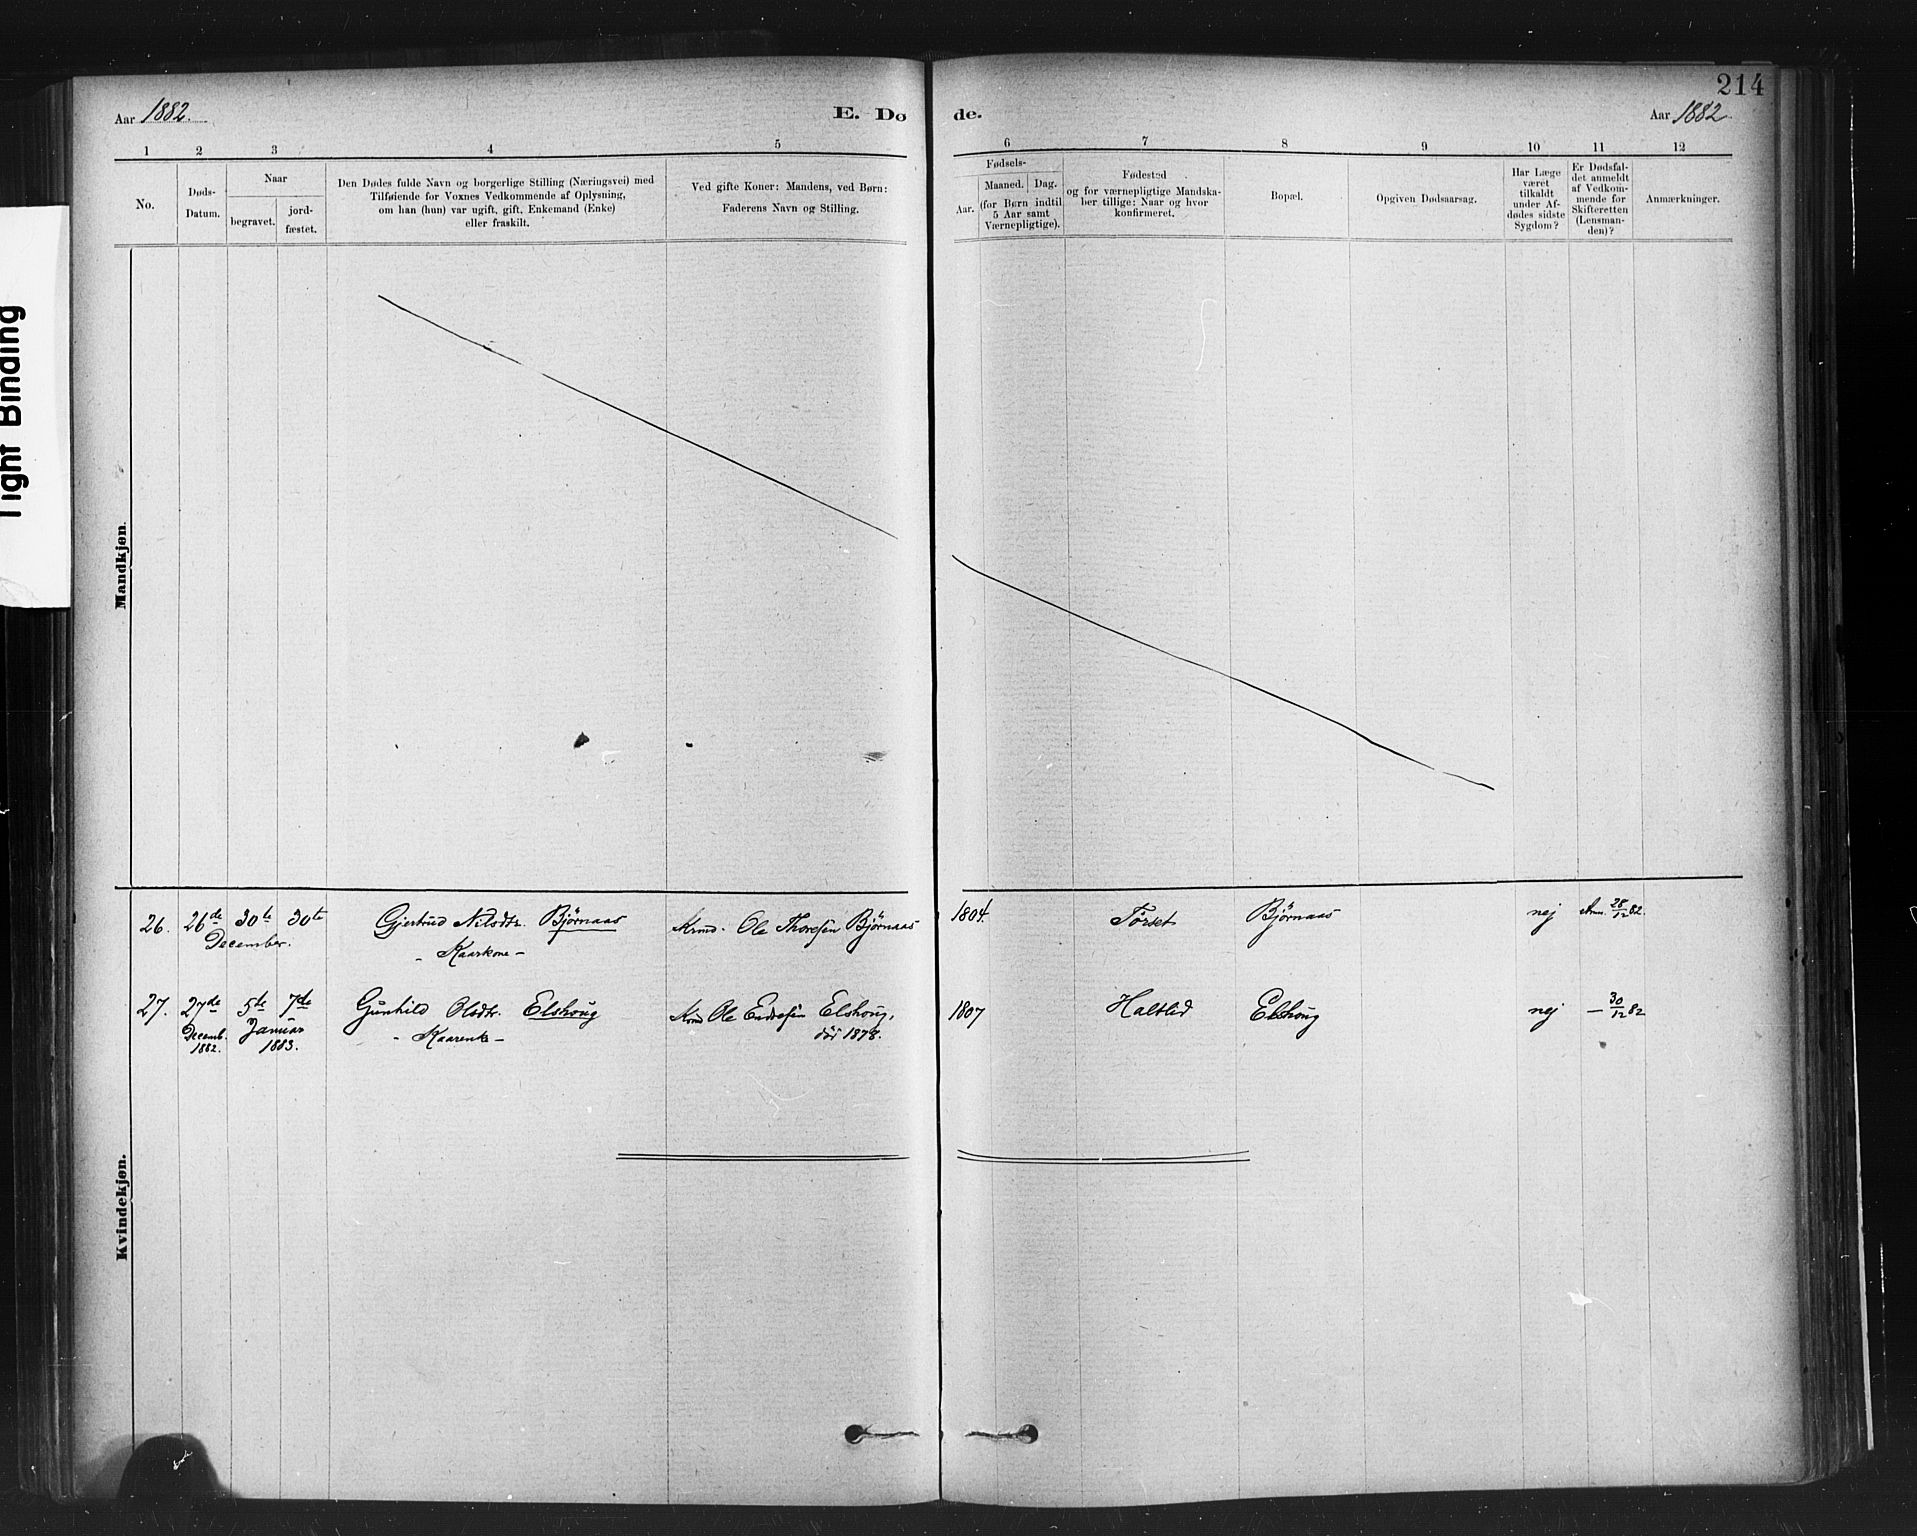 Tight Binding
214
Aar 1882.
E. Dø
de.
Aar 1882.
1 2 3 4 5 6 7 8 9 10 11 12
No.
Døds-
Datum.
Naar
begravet.
jord-
fæstet.
Den Dødes fulde Navn og borgerlige Stilling (Næringsvei) med
Tilføiende for Voxnes Vedkommende af Oplysning,
om han (hun) var ugift, gift, Enkemand (Enke)
eller fraskilt.
Ved gifte Koner: Mandens, ved Børn:
Faderens Navn og Stilling.
Fødsels-
Aar.
Maaned. Dag.
(for Børn indtil
5 Aar samt
Værnepligtige).
Fødested
og for værnepligtige Mandska-
ber tillige: Naar og hvor
konfirmeret.
Bopæl.
Opgiven Dødsaarsag.
Har Læge
været
tilkaldt
under Af-
dødes sidste
Sygdom?
Er Dødsfal-
det anmeldt
af Vedkom-
mende for
Skifteretten
(Lensman-
den)?
Anmærkninger.
Mandkjøn.
Kvindekjøn.
26. 26de 30te 30te Gjertrud Nilsdtr. Bjørnaas Krmd. Ole Thoresen Bjørnaas 1804. Tørset Bjørnaas nej Anm. 28/12 82.
December.
- Kaarkone -
27. 27de 5te 7de Gunhild Olsdtr. Elshoug Krmd Ole Endresen Elshoug, 1807 Haltlid Elshoug nej — 30/12 82
Decemb. Januar - Kaarenke - død 1878.
1882. 1883.